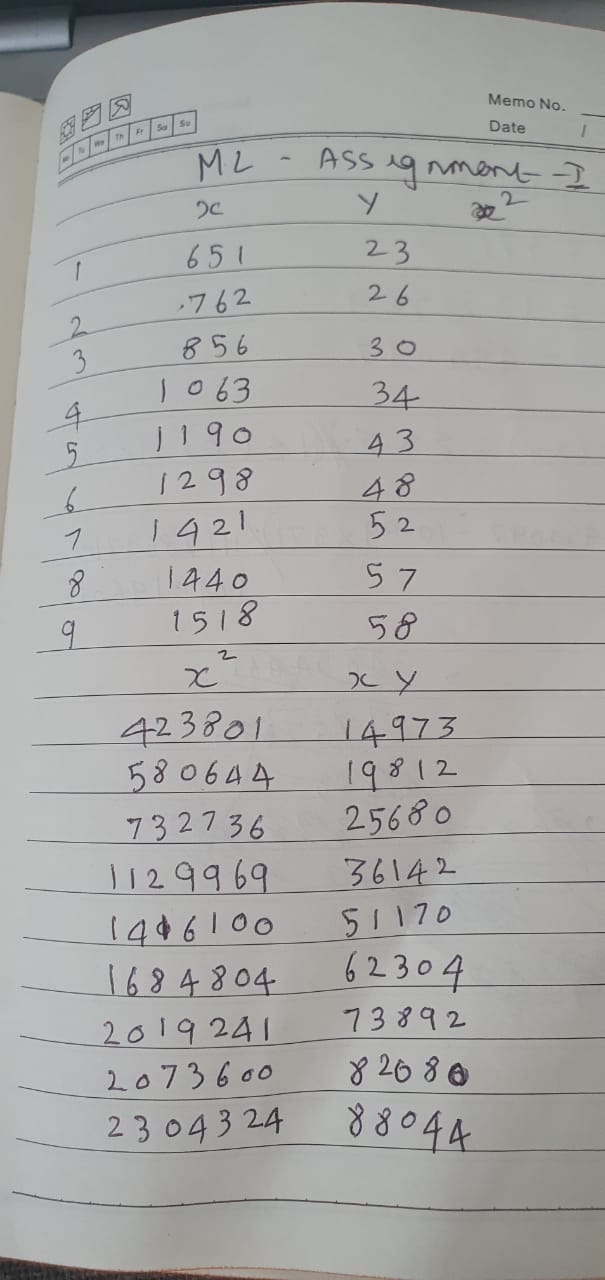 Memo No.
Mo Tu We Th Fr Sa Su
Date 1
ML - Assignment - I
x y x²
1 651 23
2 762 26
3 856 30
4 1063 34
5 1190 43
6 1298 48
7 1421 52
8 1440 57
9 1518 58
x² xy
423801 14973
580644 19812
732736 25680
1129969 36142
1416100 51170
1684804 62304
2019241 73892
2073600 82080
2304324 88044